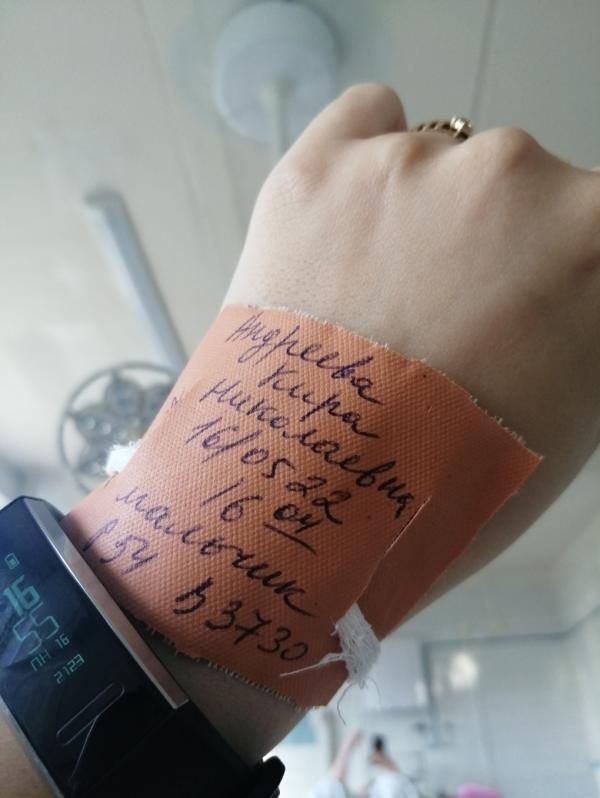 Андреева
Кира
Николаевна
16/05 22
16 04
мальчик
Р54 В3730
16
55
ПН 16
2123